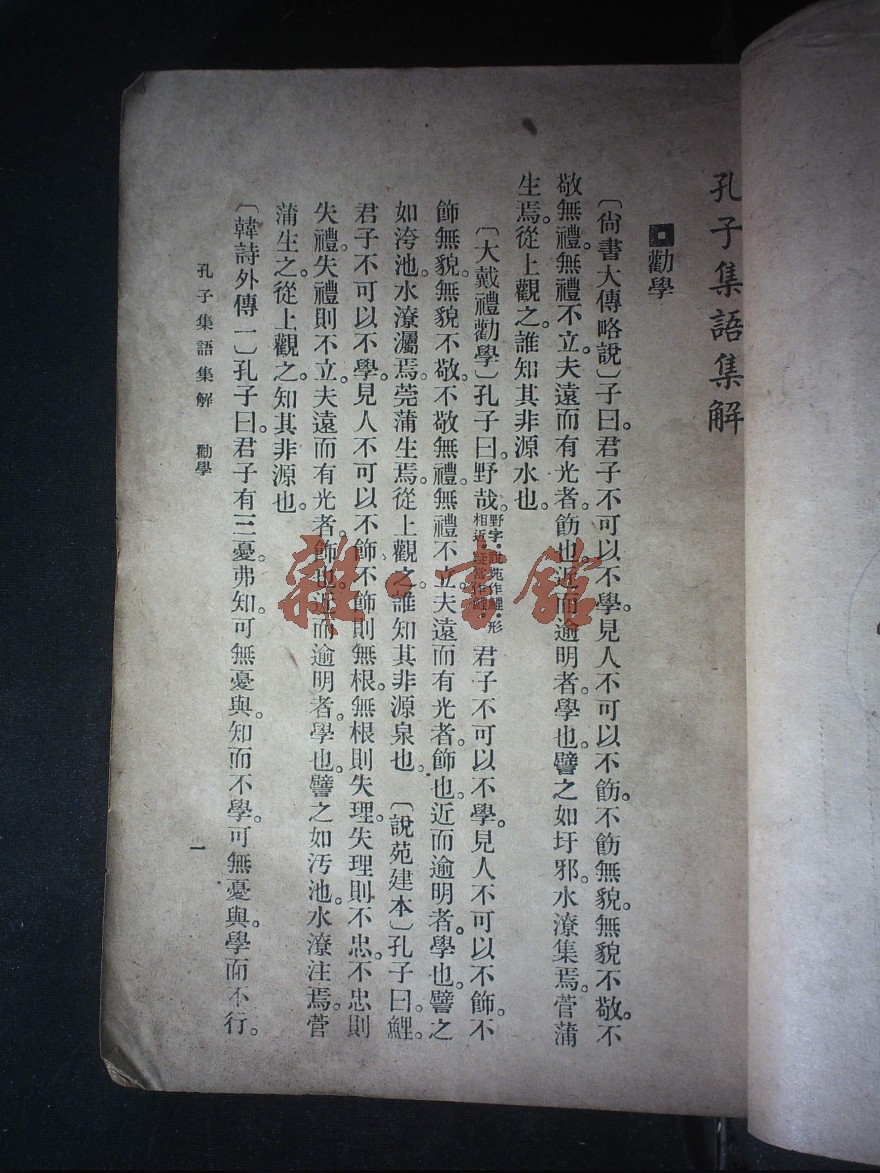 孔子集語集解
勸學
〔尙書大傳略說〕子曰。君子不可以不學。見人不可以不飭。不飭無貌。無貌不敬。不
敬無禮。無禮不立。夫遠而有光者。飭也。近而逾明者。學也。譬之如圩邪。水潦集焉。菅蒲
生焉。從上觀之。誰知其非源水也。
〔大戴禮勸學〕孔子曰。野哉。野字。說苑作鯉。形相近。疑當作鯉。君子不可以不學。見人不可以不飾。不
飾無貌。無貌不敬。不敬無禮。無禮不立。夫遠而有光者。飾也。近而逾明者。學也。譬之
如洿池。水潦灟焉。莞蒲生焉。從上觀之。誰知其非源泉也。〔說苑建本〕孔子曰。鯉。
君子不可以不學。見人不可以不飾。不飾則無根。無根則失理。失理則不忠。不忠則
失禮。失禮則不立。夫遠而有光者。飾也。近而逾明者。學也。譬之如汚池。水潦注焉。菅
蒲生之。從上觀之。知其非源也。
〔韓詩外傳一〕孔子曰。君子有三憂。弗知。可無憂與。知而不學。可無憂與。學而不行。
孔子集語集解 勸學
一
雜·書館